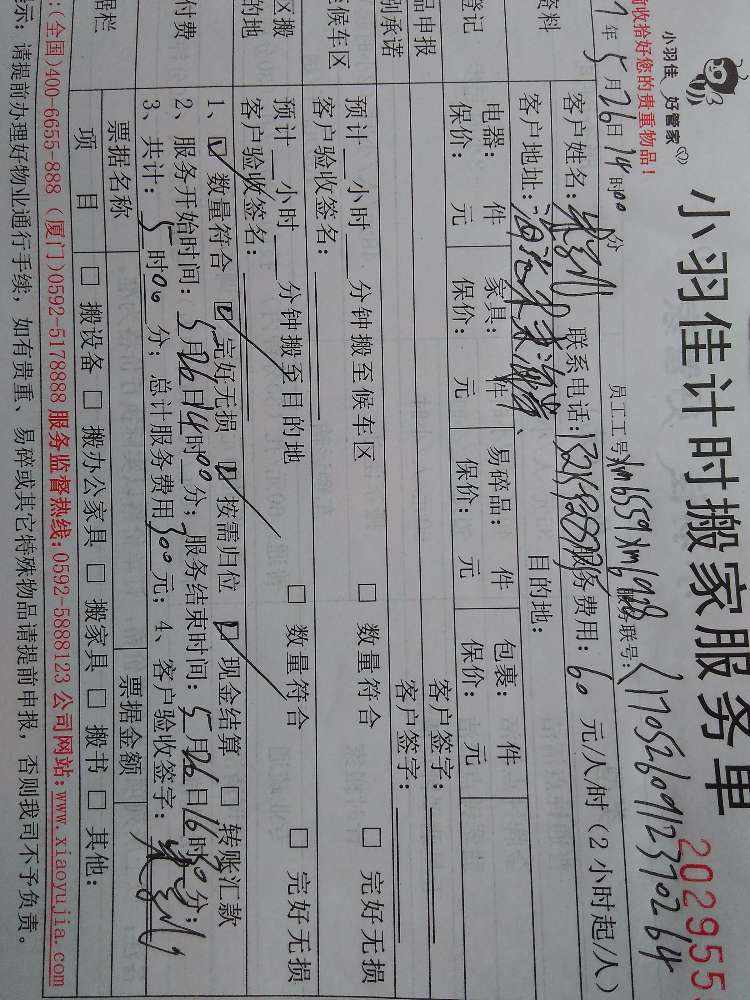 小羽佳计时搬家服务单
202955
小羽佳 好管家
前收拾好您的贵重物品！
员工工号: xm6559 xm6988 服务联号: 1705260912370264
7年5月26日14时00分
资料
客户姓名: 联系电话: 服务费用: 60元/人/时（2小时起/人）
客户地址: 目的地:
登记
电器: 件 家具: 件 易碎品: 件 包裹: 件
保价: 元 保价: 元 保价: 元 保价: 元
品申报 客户签字:
别承诺 客户签字:
候车区
预计 小时 分钟搬至候车区 □ 数量符合 □ 完好无损
客户验收签名:
区搬
的地
预计 小时 分钟搬至目的地 □ 数量符合 □ 完好无损
客户验收签名:
付费
1、☑ 数量符合 ☑ 完好无损 ☑ 按需归位 ☑ 现金结算 □ 转账汇款
2、服务开始时间: 5月26日14时00分; 服务结束时间: 5月26日16时50分;
3、共计: 5时00分; 总计服务费用300元; 4、客户验收签字:
据栏
票据名称 票据金额
项 目 □ 搬设备 □ 搬办公家具 □ 搬家具 □ 搬书 □ 其他:
:(全国)400-6655-888 (厦门)0592-5178888 服务监督热线:0592-5888123 公司网站:www.xiaoyujia.com
示: 请提前办理好物业通行手续, 如有贵重、易碎或其它特殊物品请提前申报, 否则我司不予负责。